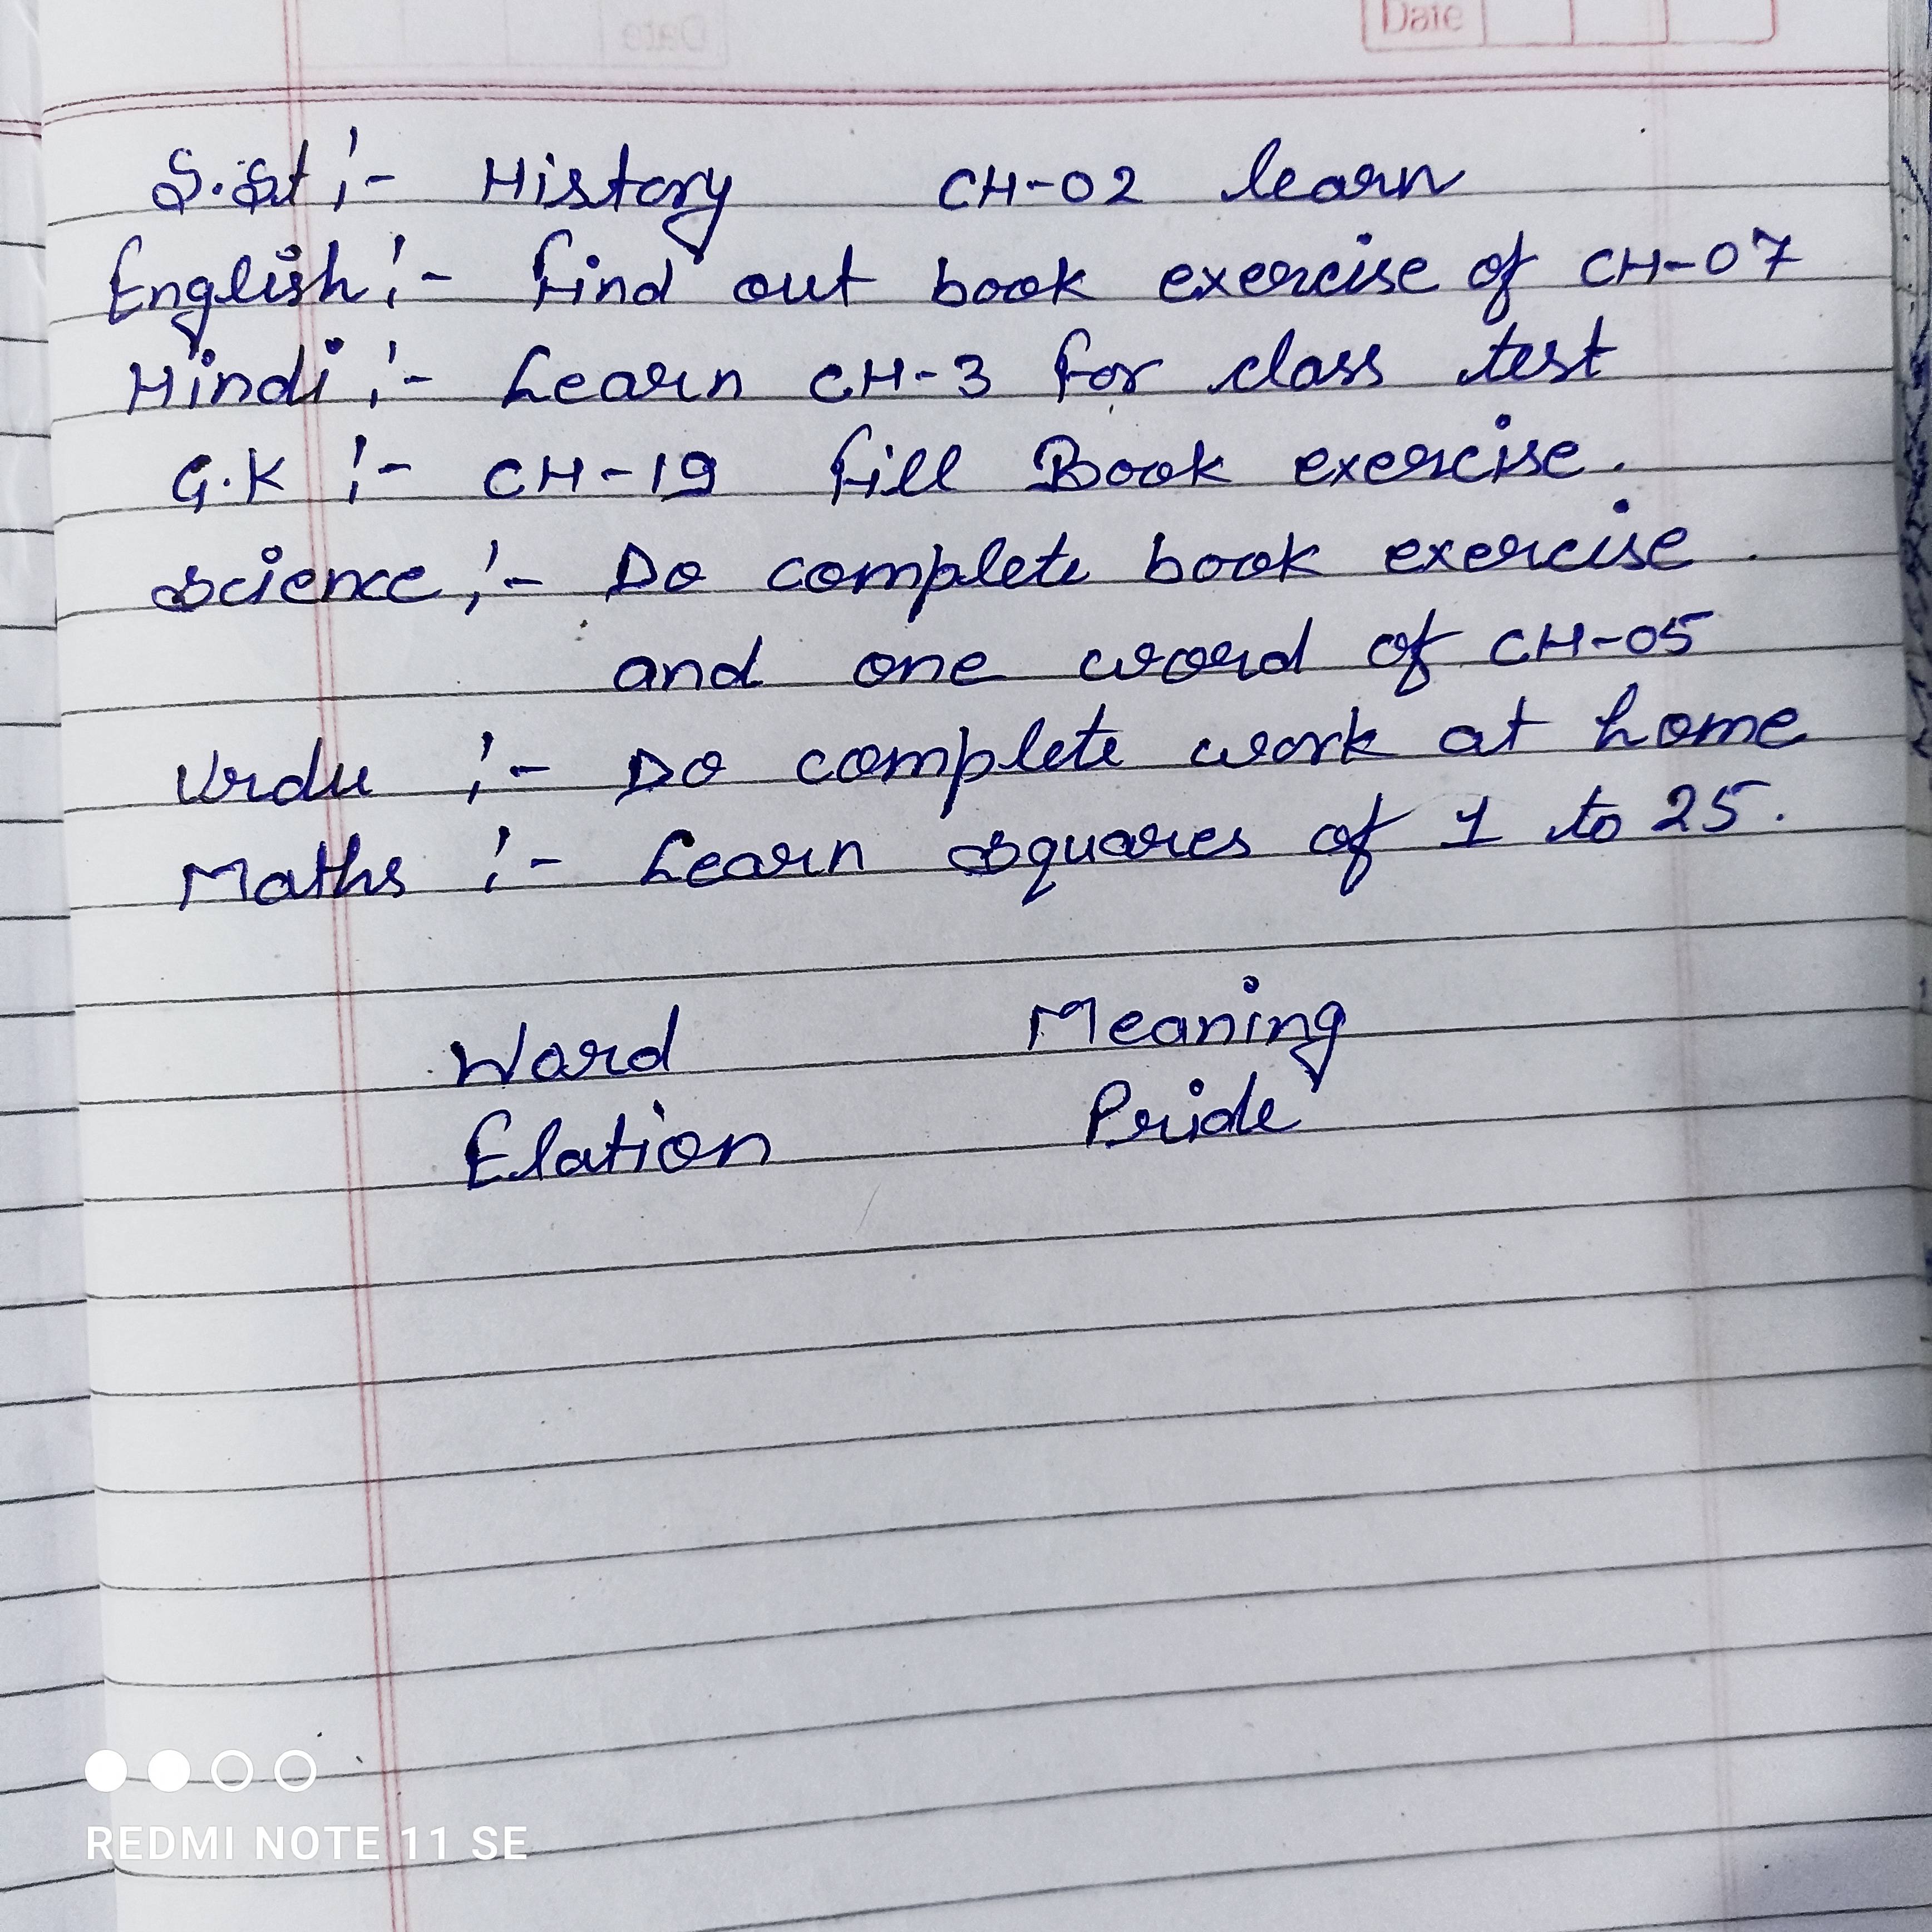 Date
S.St :- History CH-02 learn
English :- Find out book exercise of CH-07
Hindi :- Learn CH-3 for class test
G.K :- CH-19 fill Book exercise.
Science :- Do complete book exercise.
and one word of CH-05
Urdu :- Do complete work at home
Maths :- Learn squares of 1 to 25.
Word Meaning
Elation Pride
REDMI NOTE 11 SE